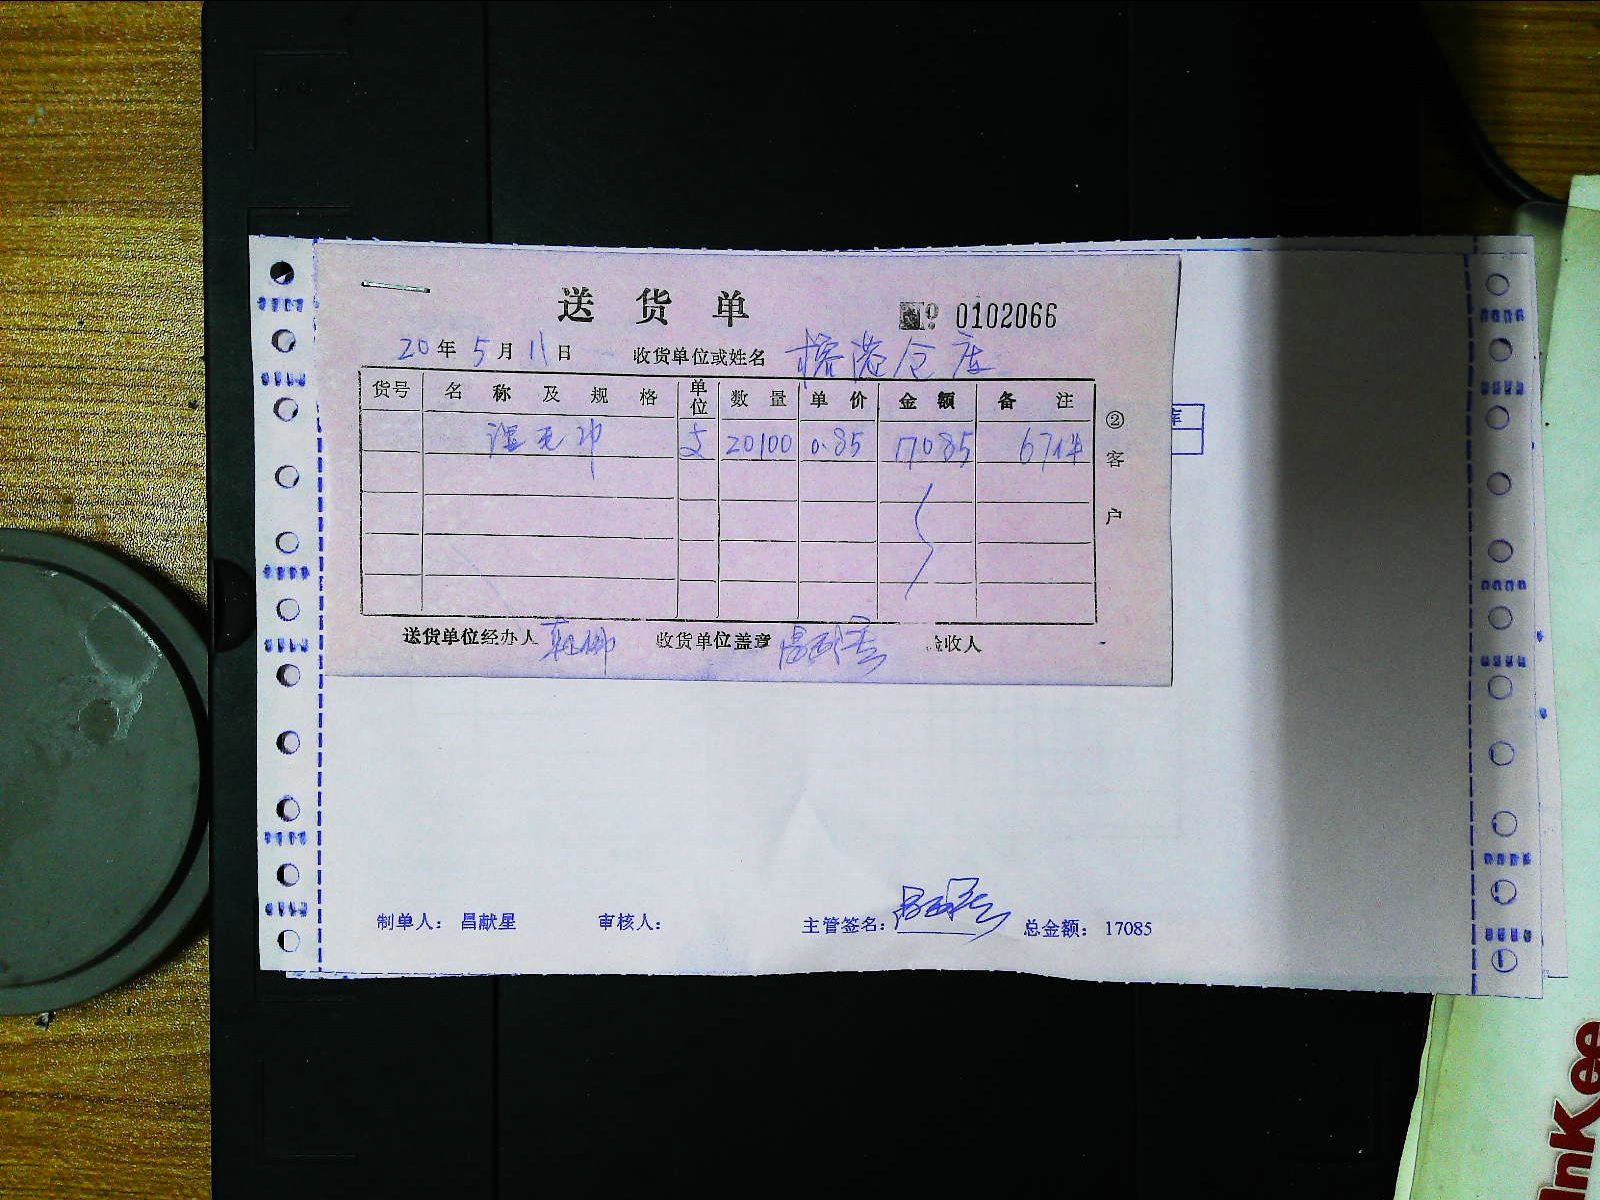 送货单
№ 0102066
20年5月11日 收货单位或姓名 榕港仓库
货号 名称及规格 单位 数量 单价 金额 备注
支 20100 0.85 17085 67件
②客户
库
送货单位经办人 收货单位盖章 验收人
制单人: 昌献星 审核人: 主管签名: 总金额: 17085
InKee